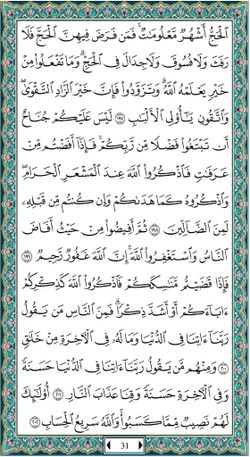 ٱلْحَجُّ أَشْهُرٌ مَّعْلُومَٰتٌ ۚ فَمَن فَرَضَ فِيهِنَّ ٱلْحَجَّ فَلَا
رَفَثَ وَلَا فُسُوقَ وَلَا جِدَالَ فِى ٱلْحَجِّ ۗ وَمَا تَفْعَلُوا۟ مِنْ
خَيْرٍ يَعْلَمْهُ ٱللَّهُ ۗ وَتَزَوَّدُوا۟ فَإِنَّ خَيْرَ ٱلزَّادِ ٱلتَّقْوَىٰ ۚ
وَٱتَّقُونِ يَٰٓأُو۟لِى ٱلْأَلْبَٰبِ ١٩٧ لَيْسَ عَلَيْكُمْ جُنَاحٌ
أَن تَبْتَغُوا۟ فَضْلًا مِّن رَّبِّكُمْ ۚ فَإِذَآ أَفَضْتُم مِّنْ
عَرَفَٰتٍ فَٱذْكُرُوا۟ ٱللَّهَ عِندَ ٱلْمَشْعَرِ ٱلْحَرَامِ ۖ
وَٱذْكُرُوهُ كَمَا هَدَىٰكُمْ وَإِن كُنتُم مِّن قَبْلِهِۦ
لَمِنَ ٱلضَّآلِّينَ ١٩٨ ثُمَّ أَفِيضُوا۟ مِنْ حَيْثُ أَفَاضَ
ٱلنَّاسُ وَٱسْتَغْفِرُوا۟ ٱللَّهَ ۚ إِنَّ ٱللَّهَ غَفُورٌ رَّحِيمٌ ١٩٩
فَإِذَا قَضَيْتُم مَّنَٰسِكَكُمْ فَٱذْكُرُوا۟ ٱللَّهَ كَذِكْرِكُمْ
ءَابَآءَكُمْ أَوْ أَشَدَّ ذِكْرًا ۗ فَمِنَ ٱلنَّاسِ مَن يَقُولُ
رَبَّنَآ ءَاتِنَا فِى ٱلدُّنْيَا وَمَا لَهُۥ فِى ٱلْءَاخِرَةِ مِنْ خَلَٰقٍ
٢٠٠ وَمِنْهُم مَّن يَقُولُ رَبَّنَآ ءَاتِنَا فِى ٱلدُّنْيَا حَسَنَةً
وَفِى ٱلْءَاخِرَةِ حَسَنَةً وَقِنَا عَذَابَ ٱلنَّارِ ٢٠١ أُو۟لَٰٓئِكَ
لَهُمْ نَصِيبٌ مِّمَّا كَسَبُوا۟ ۚ وَٱللَّهُ سَرِيعُ ٱلْحِسَابِ ٢٠٢
31